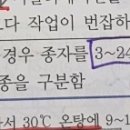 다 작업이 번잡하
경우 종자를 3~24
종을 구분함
서 30℃ 온탕에 9~1